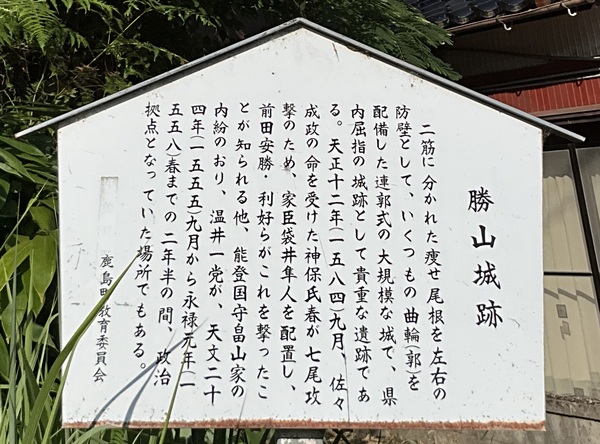 勝山城跡
二筋に分かれた痩せ尾根を左右の
防壁として、いくつもの曲輪(郭)を
配備した連郭式の大規模な城で、県
内屈指の城跡として貴重な遺跡であ
る。天正十二年(一五八四)九月、佐々
成政の命を受けた神保氏春が七尾攻
撃のため、家臣袋井隼人を配置し、
前田安勝・利好らがこれを撃ったこ
とが知られる他、能登国守畠山家の
内紛のおり、温井一党が、天文二十
四年(一五五五)九月から永禄元年(一
五五八)春までの二年半の間、政治
拠点となっていた場所でもある。
鹿島町教育委員会